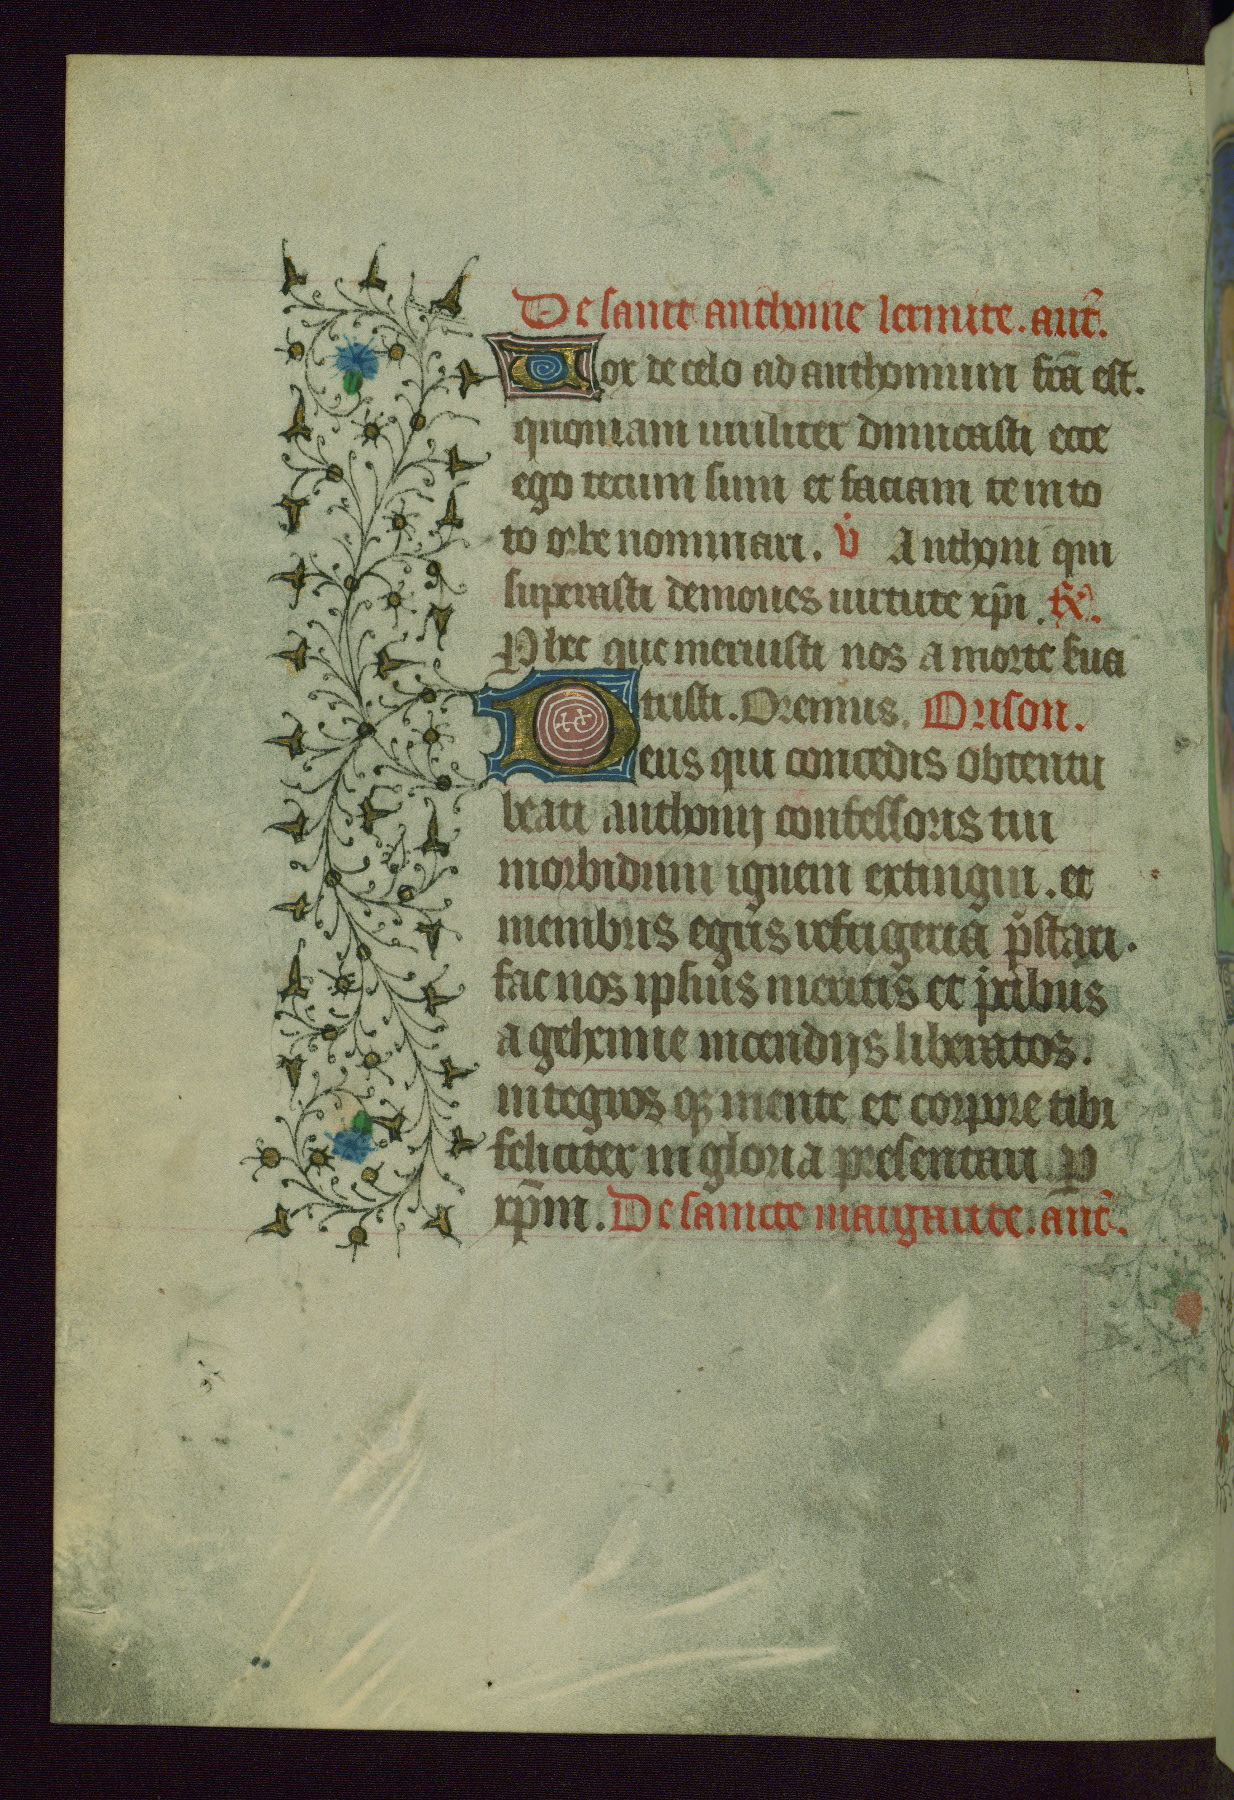 De sainct anthoine lermite. ant̃.
Vox de celo ad anthonium fc̃a est.
quoniam uiriliter dimicasti ecce
ego tecum sum et faciam te in to
to orbe nominari. v̇ Anthoni qui
superasti demones uirtute xp̃i. ℟.
Plix que meruisti nos a morte
tristi. Oremus. Orison.
Deus qui concedis obtentu
beati anthonij confessoris tui
morbidum ignem extingui. et
membris egris refrigeria p̃stari.
fac nos ipsius meritis et p̃cibus
a gehenne incendijs liberatos.
integros qʒ mente et corpore tibi
feliciter in gloria presentari ꝑ
xp̃m. De saincte margarite. ant̃.